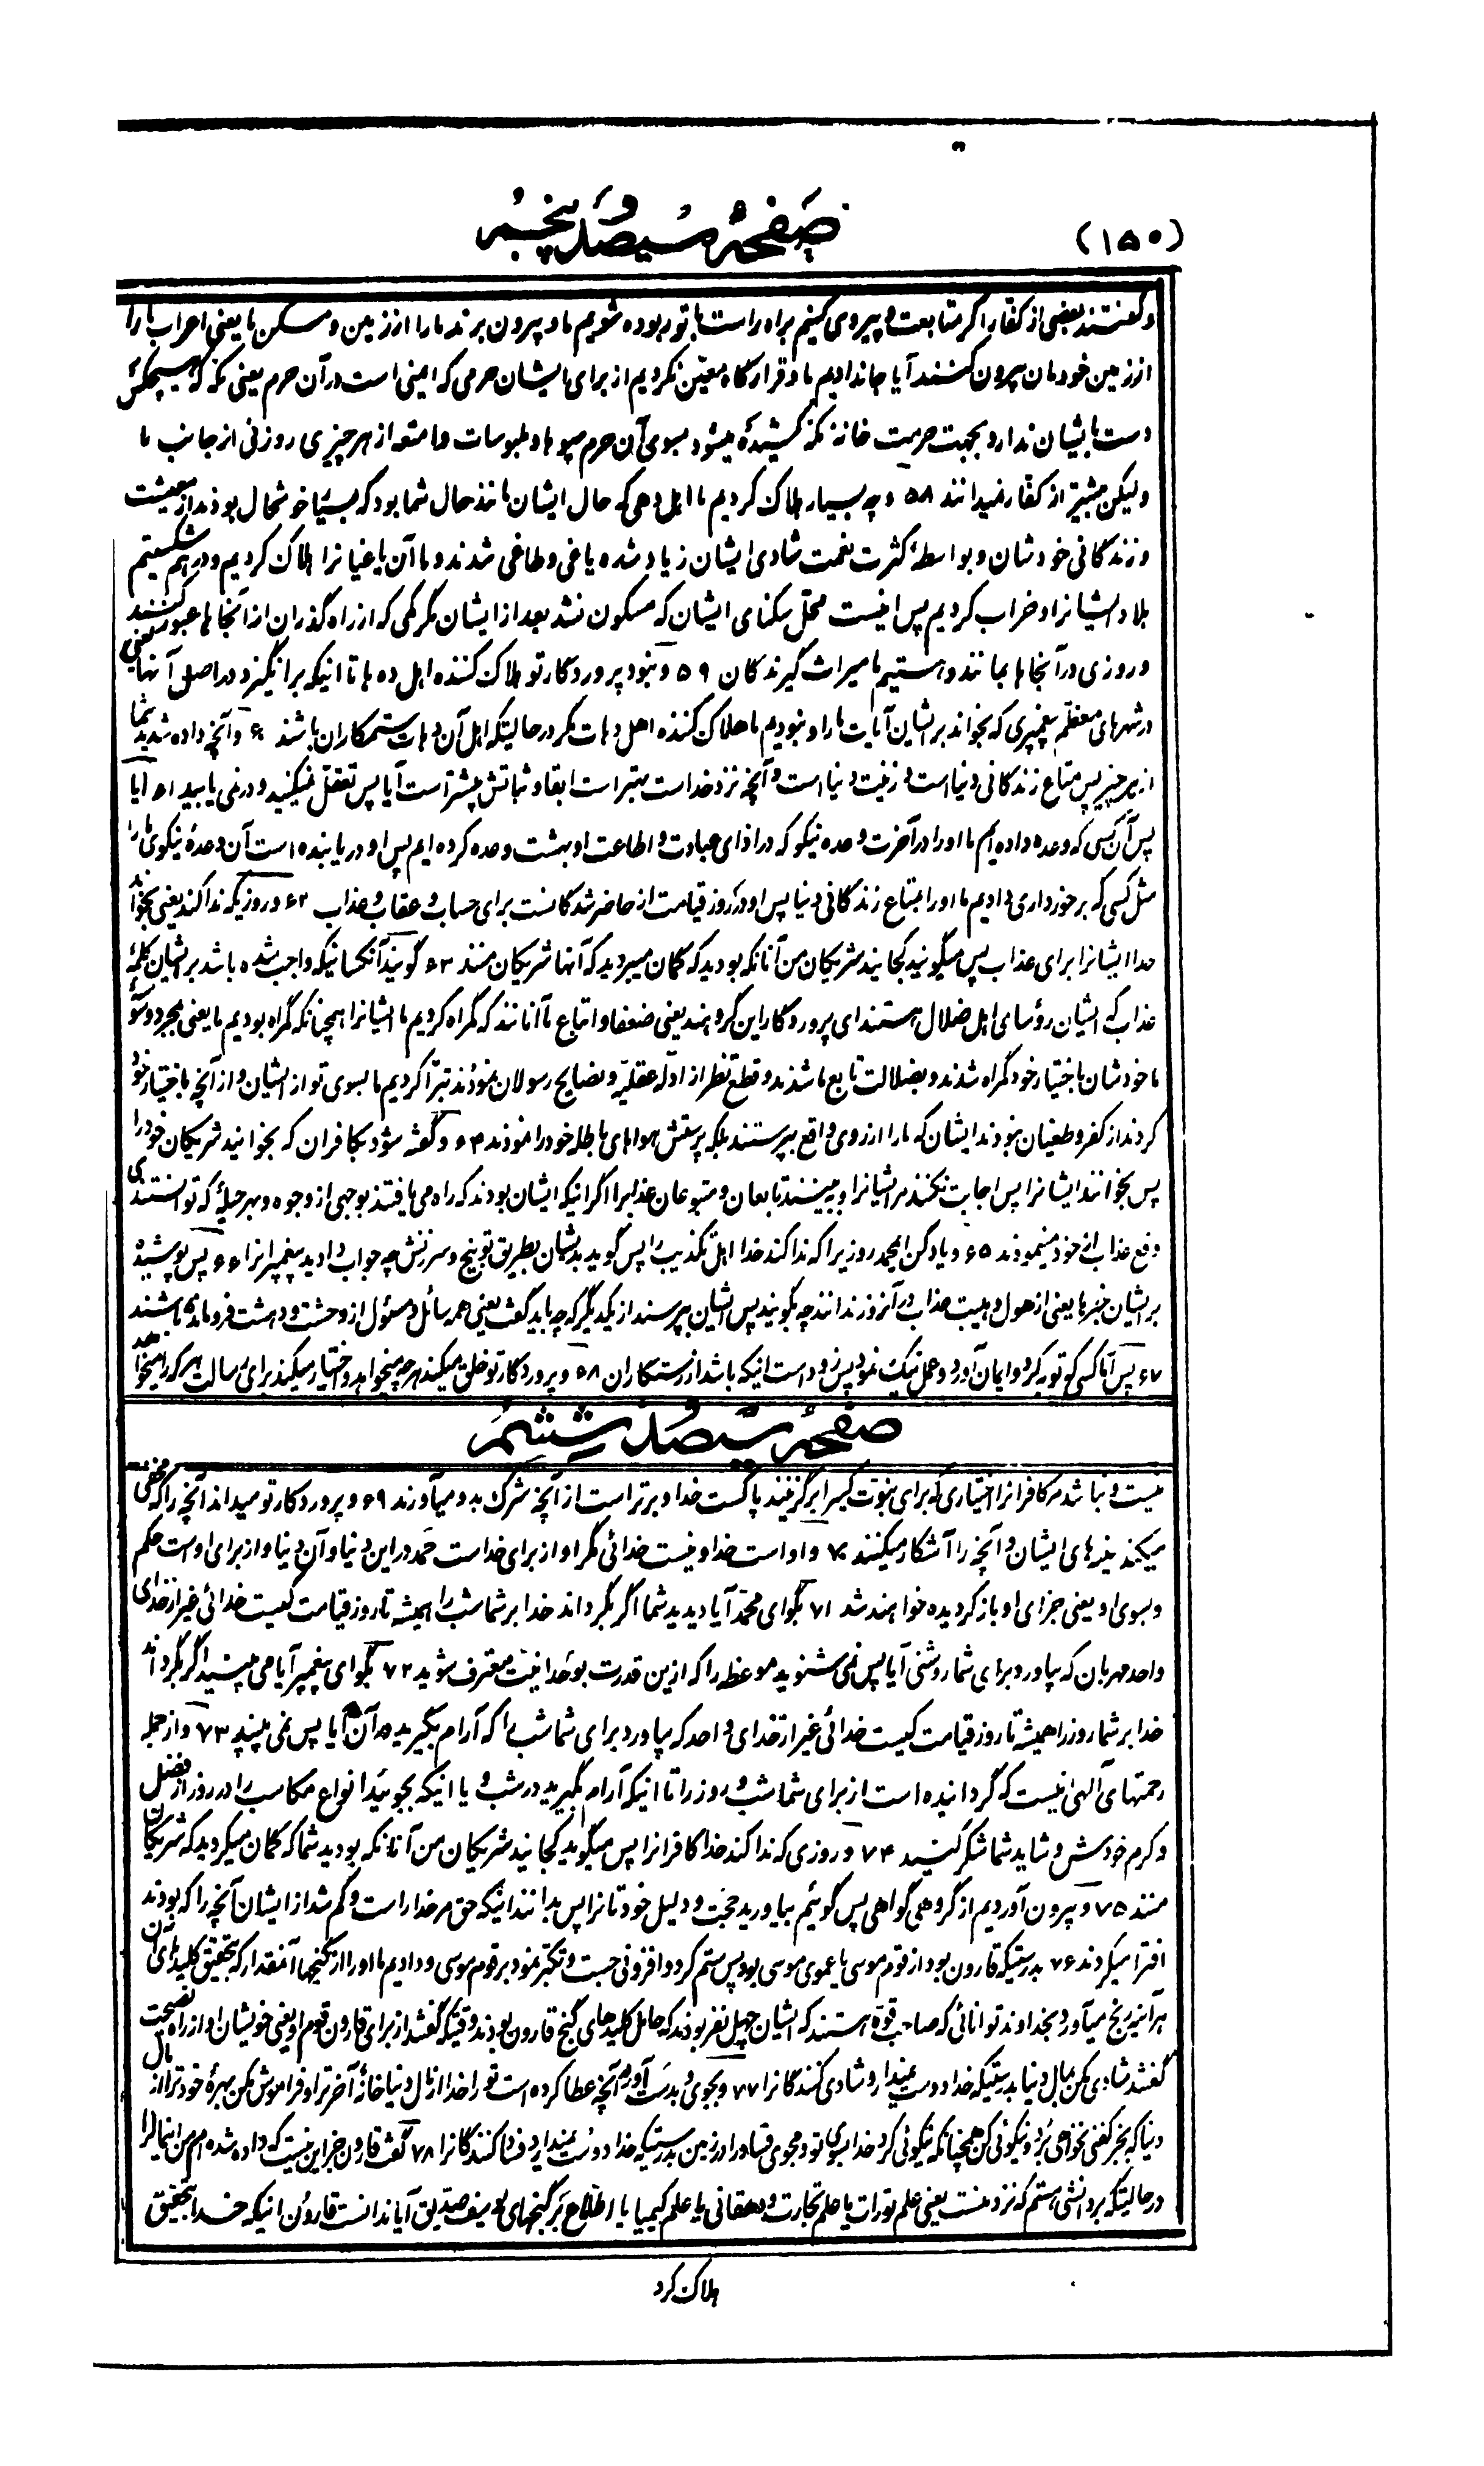 (۱۵۰)
صفحهٔ سیصد و پنجم
و گفتند بعضی از کفار اگر متابعت و پیروی کنیم براه راست با تو ربوده شویم ما و بیرون برند ما را از زمین و مسکن ما یعنی اعراب ما را
از زمین خودمان بیرون کنند آیا جا ندادیم ما و قرارگاه معیّن نکردیم از برای ایشان حرمی که ایمنی است در آن حرم یعنی مکه که هیچکس
دست بایشان ندارد بجهت حرمت خانهٔ مکه کشیده میشود بسوی آن حرم میوه‌ها و ملبوسات و امتعه از هر چیزی روزئی از جانب ما
ولیکن بیشتر از کفّار نمیدانند ۵۸ و چه بسیار هلاک کردیم ما اهل دهی که حال ایشان مانند حال شما بود که بسیار خوشحال بودند از معیشت
و زندگانی خودشان و بواسطهٔ کثرت نعمت شادی ایشان زیاد شده یاغی و طاغی شدند و ما آن یاغیانرا هلاک کردیم و درهم شکستیم
بلاد ایشانرا و خراب کردیم پس اینست محلّ سکنای ایشان که مسکون نشد بعد از ایشان مگر کمی که از راه گذران از آنجاها عبور کنند
و روزی در آنجاها بمانند و هستیم ما میراث گیرندگان ۵۹ و نبود پروردگار تو هلاک کننده اهل ده ها تا اینکه برانگیزد در اصل آنها یعنی
در شهرهای معظم پیغمبری که بخواند بر ایشان آیات ما را و نبودیم ما هلاک کننده اهل دهات مگر در حالیکه اهل آن دهات ستمکاران باشند ۶۰ و آنچه داده شدید شما
از هر چیز پس متاع زندگانی دنیا است و زینت دنیا است و آنچه نزد خداست بهتر است ابقا و ثباتش بیشتر است آیا پس تعقل نمیکنید و در نمی یابید ۶۱ آیا
پس آن کسی که وعده داده ایم ما او را در آخرت وعده نیکو که در ازای عبادت و اطاعت او بهشت وعده کرده ایم پس او دریابنده است آن وعدهٔ نیکوی ما را
مثل کسی که برخورداری دادیم ما او را بمتاع زندگانی دنیا پس او در روز قیامت از حاضر شدگانست برای حساب و عقاب و عذاب ۶۲ و روزیکه ندا کند یعنی بخواند
خدا ایشانرا برای عذاب پس میگوید کجایند شریکان من آنانکه بودید که گمان میبردید که آنها شریکان منند ۶۳ گویند آنکسانیکه واجب شده باشد بر ایشان کلمهٔ
عذاب که ایشان رؤسای اهل ضلال هستند ای پروردگار این گروهند یعنی ضعفا و اتباع ما آنانند که گمراه کردیم ما ایشانرا همچنانکه گمراه بودیم ما یعنی بمجرد وسوسهٔ
ما خودشان باختیار خود گمراه شدند و بضلالت تابع ما شدند و قطع نظر از ادلّه عقلیّه و نصایح رسولان نمودند تبرّا کردیم ما بسوی تو از ایشان و از آنچه باختیار خود
کردند از کفر و طغیان نبودند ایشان که ما را از روی واقع بپرستند بلکه پرستش هواهای باطله خود را نمودند ۶۴ و گفته شود بکافران که بخوانید شریکان خود را
پس بخوانند ایشانرا پس اجابت نکنند مر ایشانرا و ببینند تابعان و متبوعان عذابرا اگر اینکه ایشان بودند که راه می یافتند بوجهی از وجوه و بهر حیلهٔ که توانستندی
دفع عذاب از خود مینمودند ۶۵ و یاد کن ای محمد روزیرا که ندا کند خدا اهل تکذیب را پس گوید بدیشان بطریق توبیخ و سرزنش چه جواب دادید پیغمبرانرا ۶۶ پس پوشیده شود
بر ایشان خبرها یعنی از هول و هیبت عذاب در آنروز ندانند چه بگویند پس ایشان نپرسند از یکدیگر که چه باید گفت یعنی همه سائل و مسئول از وحشت و دهشت فرو مانده باشند
۶۷ پس امّا کسی که توبه کرد و ایمان آورد و عمل نیک نمود پس زود است اینکه باشد از رستگاران ۶۸ و پروردگار تو خلق میکند هر چه میخواهد و اختیار میکند برای رسالت هر که را میخواهد
صفحهٔ سیصد و ششم
نیست و نباشد مر کافرانرا اختیاری که برای نبوّت کسیرا برگزینند پاکست خدا و برتر است از آنچه شرک بدو میآورند ۶۹ و پروردگار تو میداند آنچه را که مخفی
میکند سینه‌های ایشان و آنچه را آشکار میکنند ۷۰ و او است خدا و نیست خدائی مگر او از برای خداست حمد در این دنیا و آن دنیا و از برای اوست حکم
و بسوی او یعنی جزای او بازگردیده خواهند شد ۷۱ بگو ای محمّد آیا دیدید شما اگر بگرداند خدا بر شما شب را همیشه تا روز قیامت کیست خدائی غیر از خدای
واحد مهربان که بیاورد برای شما روشنی آیا پس نمی شنوید موعظه را که ازین قدرت بوحدانیّت معترف شوید ۷۲ بگو ای پیغمبر آیا می بینید اگر بگرداند
خدا بر شما روز را همیشه تا روز قیامت کیست خدائی غیر از خدای واحد که بیاورد برای شما شب را که آرام بگیرید در آن آیا پس نمی بینید ۷۳ و از جمله
رحمتهای الهی اینست که گردانیده است از برای شما شب و روز را تا اینکه آرام بگیرید در شب و یا اینکه بجوئید انواع مکاسب را در روز از فضل
و کرم خودش و شاید شما شکر کنید ۷۴ و روزی که ندا کند خدا کافرانرا پس میگوید کجایند شریکان من آنانکه بودید شما که گمان میکردید که شریکان
منند ۷۵ و بیرون آوردیم از گروهی گواهی پس گوئیم بیاورید حجّت و دلیل خودتانرا پس بدانند اینکه حق مر خدا راست و گم شد از ایشان آنچه را که بودند
افترا میکردند ۷۶ بدرستیکه قارون بود از قوم موسی یا عموی موسی بود پس ستم کرد و افزونی جست و تکبّر نمود بر قوم موسی و دادیم ما او را از گنجها آنقدار که بتحقیق کلیدهای آن
هرآینه برنج میآورد بخداوند توانائی که صاحب قوّه هستند که ایشان چهل نفر بودند که حامل کلیدهای گنج قارون بودند وقتیکه گفتند از برای قارون قوم او یعنی خویشان او از راه نصیحت
گفتند شادی مکن بمال دنیا بدرستیکه خدا دوست نمیدارد شادی کنندگانرا ۷۷ و بجوی و بدست آور به آنچه عطا کرده است تو را خدا از مال دنیا خانهٔ آخرترا و فراموش مکن بهرهٔ خود ترا از مال
دنیا که بجز کفنی نخواهی برد و نیکوئی کن همچنانکه نیکوئی کرد خدا بسوی تو و مجوی فساد را در زمین بدرستیکه خدا دوست نمیدارد فساد کنندگانرا ۷۸ گفت قارون جز این نیست که داده شده ام من این مالرا
در حالیکه بر دانشی هستم که نزد منست یعنی علم تورات یا علم تجارت و دهقانی یا علم کیمیا یا اطّلاع بر گنجهای یوسف صدّیق آیا ندانست قارون اینکه خدا بتحقیق
هلاک کرد